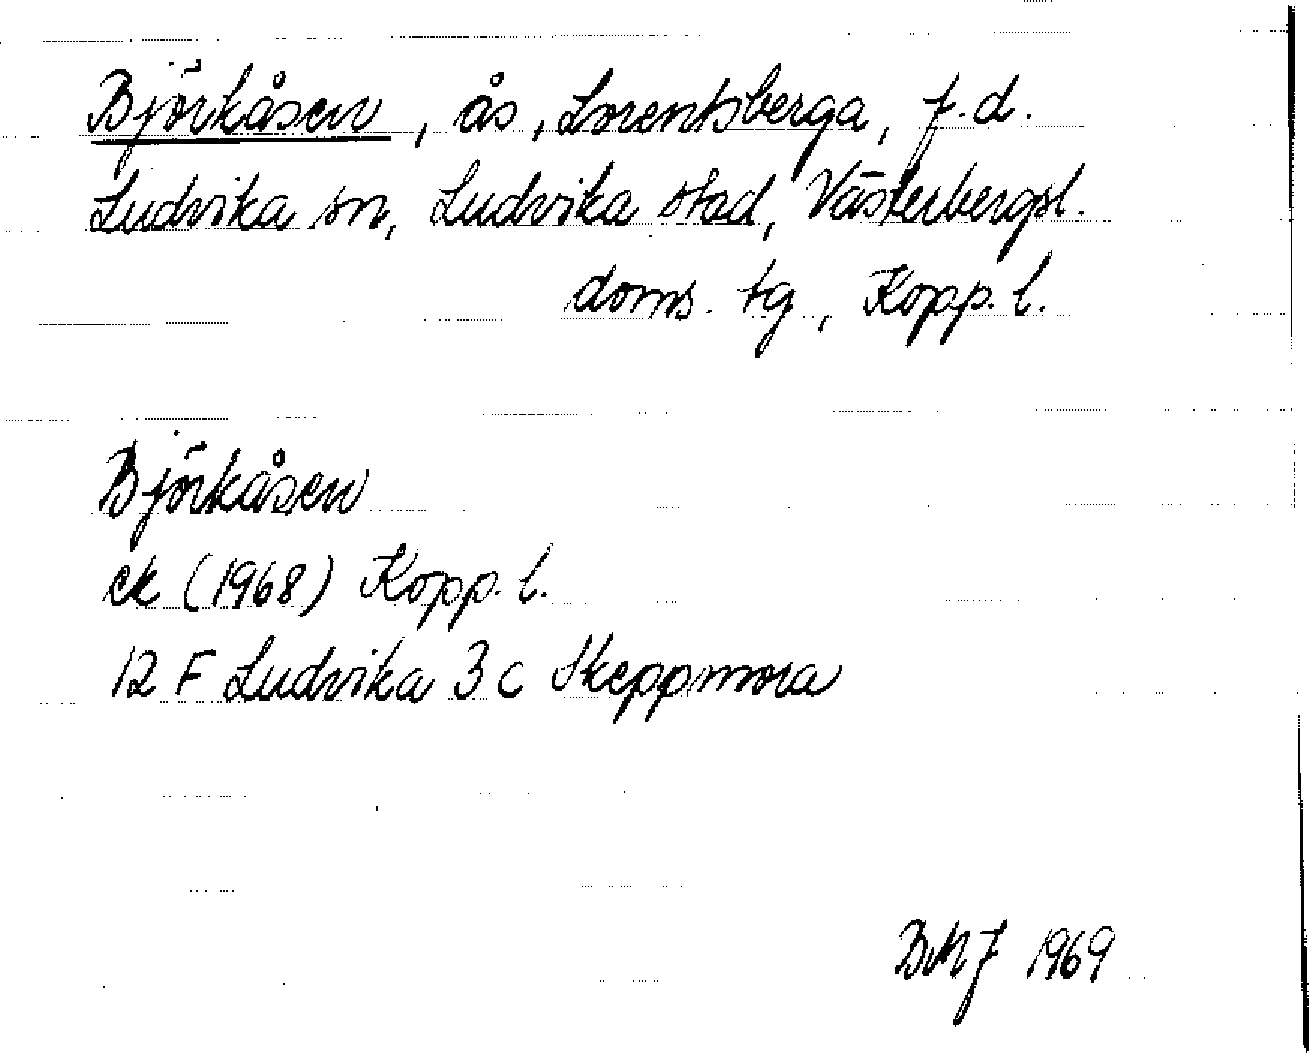 Björkåsen, ås, Lorentsberga, f.d.
Ludvika sn, Ludvika stad, Västerbergsl.
doms. tg, Kopp. l.
Björkåsen
ek (1968) Kopp. l.
12 F Ludvika 3 c Skeppmora
BMJ 1969